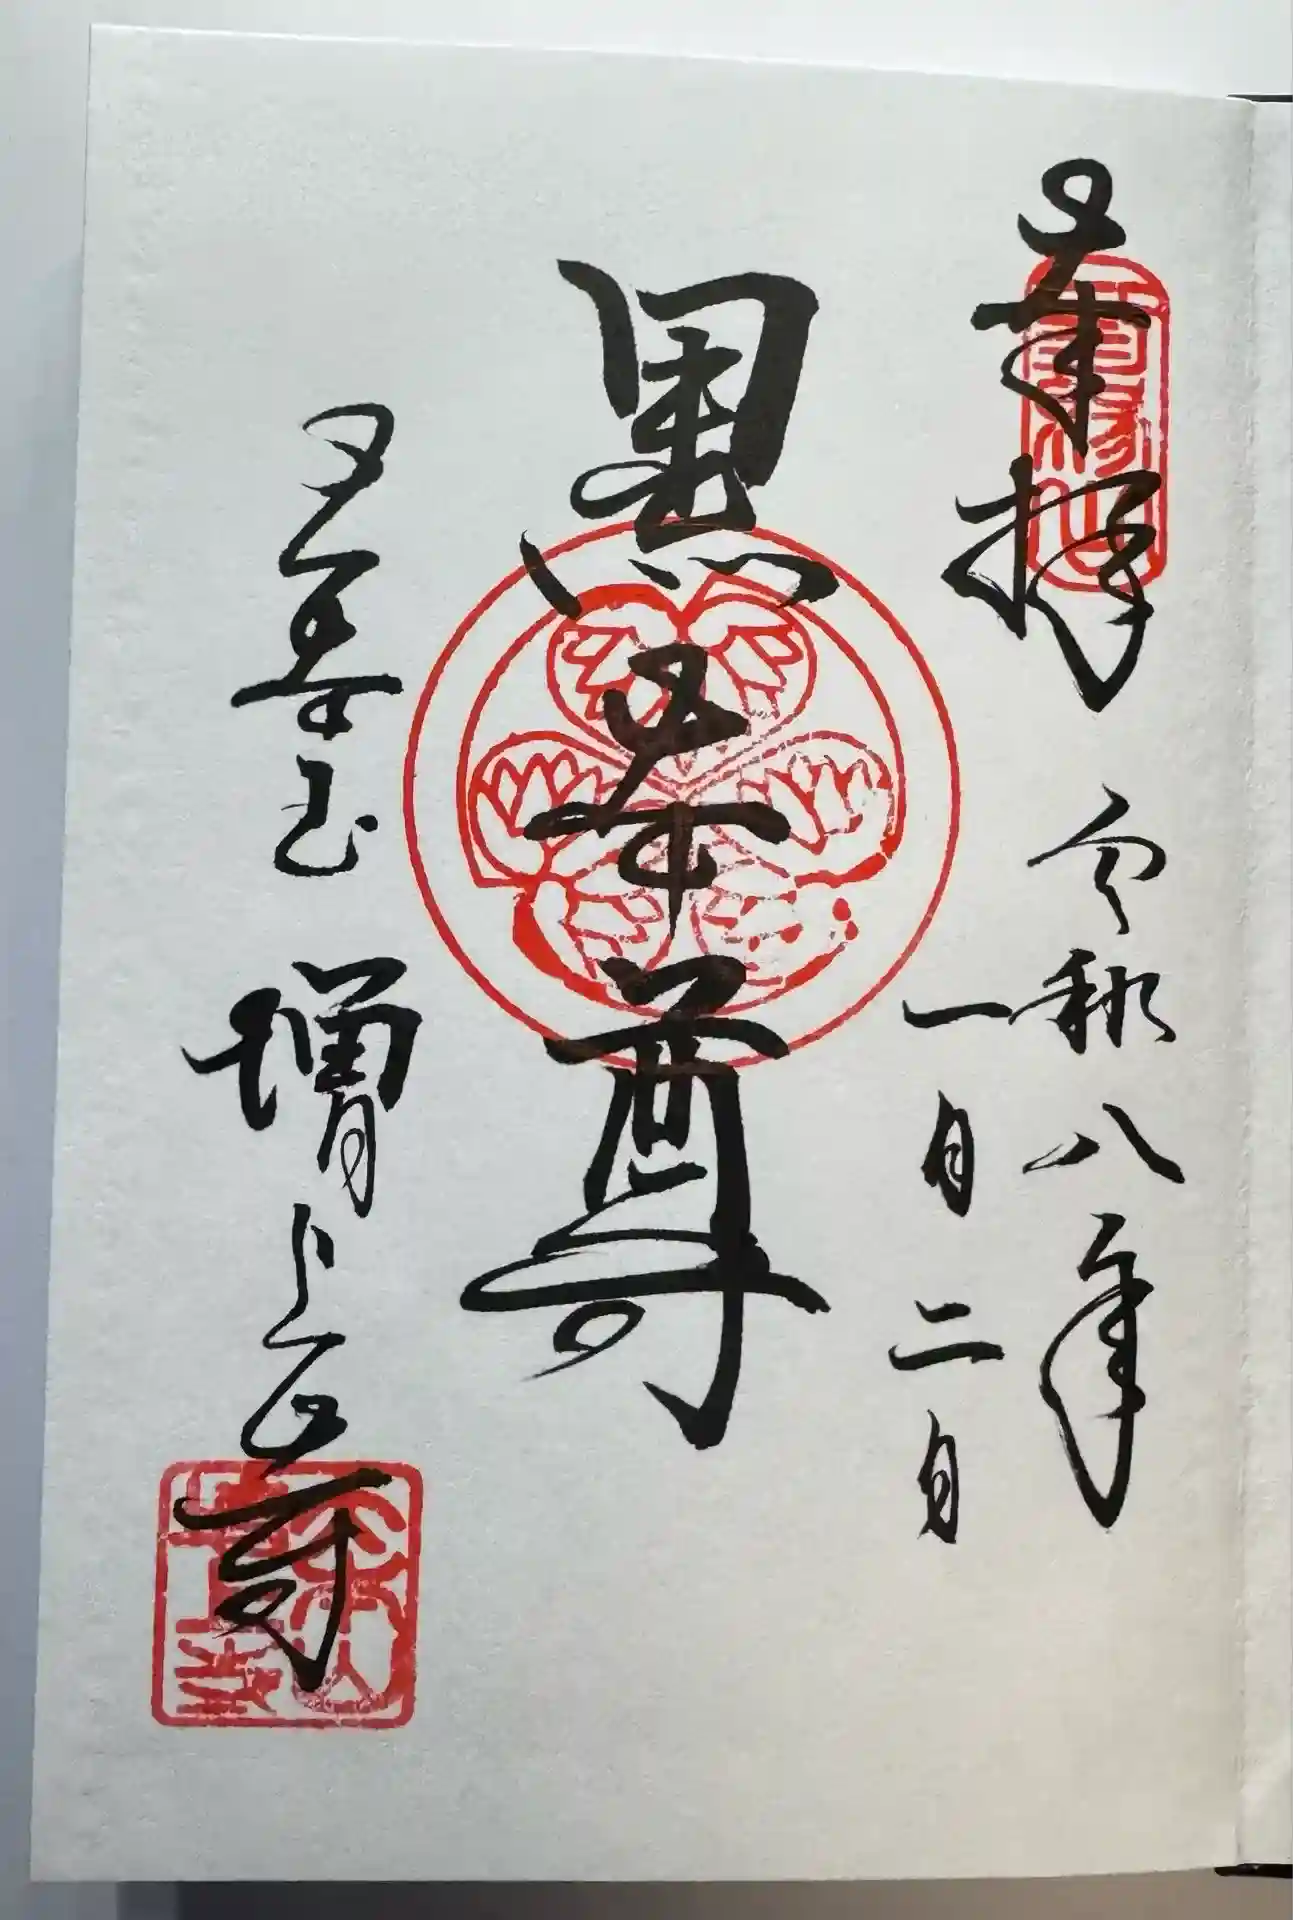 奉拝
令和八年
一月二日
黒本尊
三縁山 増上寺